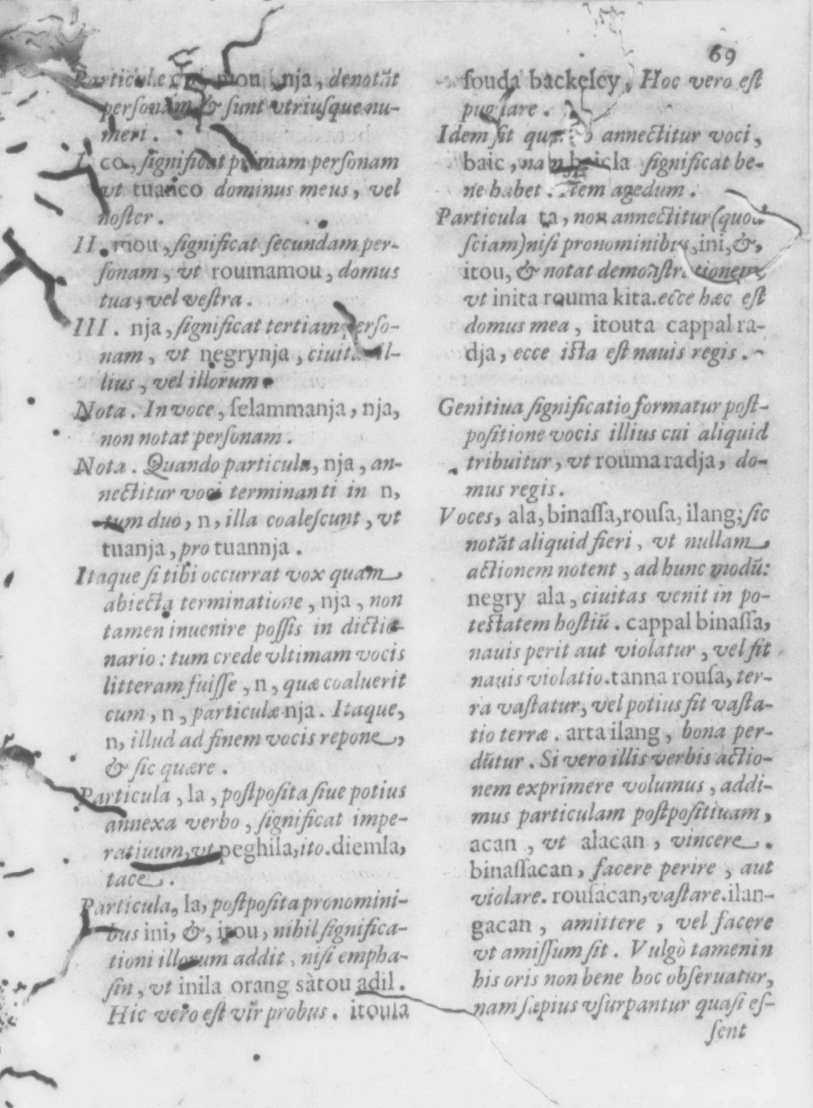 69
Particulæ co, mou, nja, denotãt
personam & sunt vtriusque nu-
meri.
I. co, significat primam personam
vt tuanco dominus meus, vel
noster.
II. mou, significat secundam per-
sonam, vt roumamou, domus
tua, vel vestra.
III. nja, significat tertiam perso-
nam, vt negrynja, ciuitas il-
lius, vel illorum.
Nota. In voce, selammanja, nja,
non notat personam.
Nota. Quando particula, nja, an-
nectitur voci terminanti in n,
tum duo, n, illa coalescunt, vt
tuanja, pro tuannja.
Itaque si tibi occurrat vox quam
abiecta terminatione, nja, non
tamen inuenire possis in dictio-
nario: tum crede vltimam vocis
litteram fuisse, n, quæ coaluerit
cum, n, particulæ nja. Itaque,
n, illud ad finem vocis repone,
& sic quære.
Particula, la, postposita siue potius
annexa verbo, significat impe-
ratiuum, vt peghila, ito. diemla,
tace.
Particula, la, postposita pronomini-
bus ini, &, itou, nihil significa-
tioni illorum addit, nisi empha-
sin, vt inila orang sàtou adil.
Hic vero est vir probus. itoula
fouda backeley, Hoc vero est
pugnare.
Idem fit annectitur voci,
baic, nam baicla significat be-
ne habet. Item agedum.
Particula ta, non annectitur (quod
sciam) nisi pronominibus, ini, &,
itou, & notat demonstrationem,
vt inita rouma kita. ecce hæc est
domus mea, itouta cappal ra-
dja, ecce ista est nauis regis.
Genitiua significatio formatur post-
positione vocis illius cui aliquid
tribuitur, vt rouma radja, do-
mus regis.
Voces, ala, binassa, rousa, ilang; sic
notãt aliquid fieri, vt nullam
actionem notent, ad hunc modũ:
negry ala, ciuitas venit in po-
testatem hostiũ. cappal binassa,
nauis perit aut violatur, vel fit
nauis violatio. tanna rousa, ter-
ra vastatur, vel potius fit vasta-
tio terræ. arta ilang, bona per-
dũtur. Si vero illis verbis actio-
nem exprimere volumus, addi-
mus particulam postpositiuam,
acan, vt alacan, vincere.
binassacan, facere perire, aut
violare. rousacan, vastare. ilan-
gacan, amittere, vel facere
vt amissum sit. Vulgò tamen in
his oris non bene hoc obseruatur,
nam sæpius vsurpantur quasi es-
sent